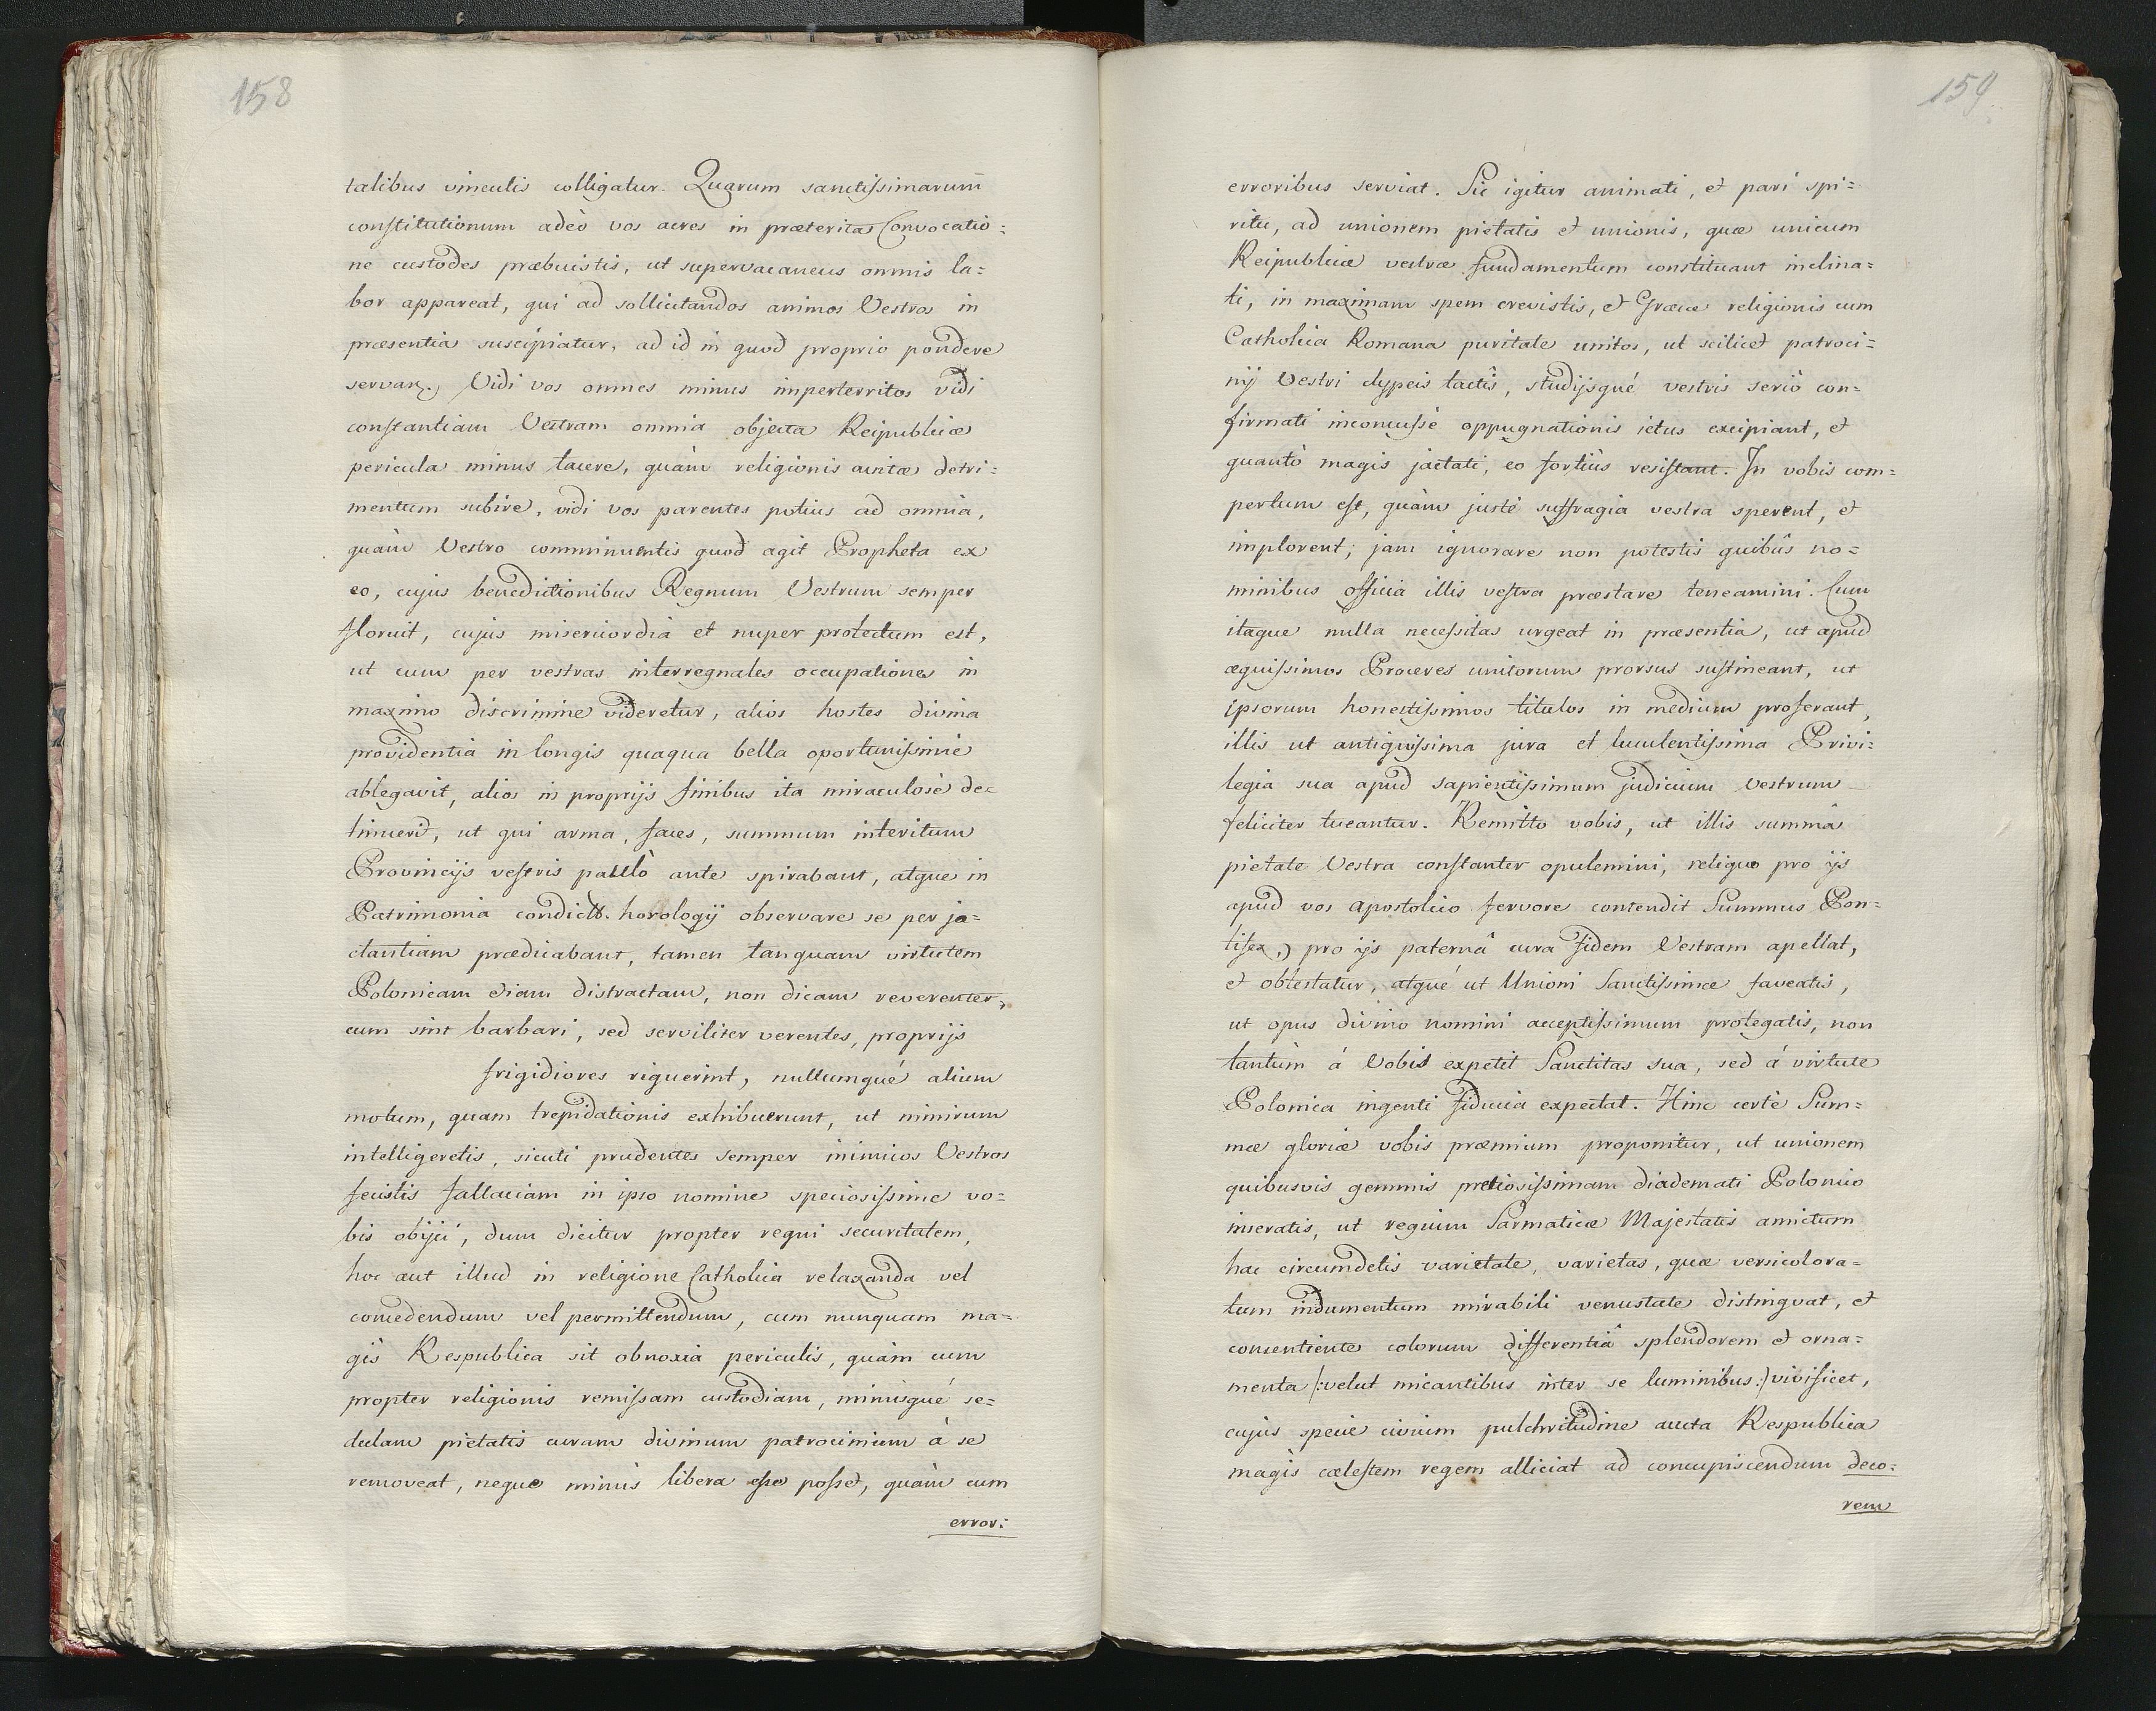 158
talibus vinculis colligatur. Quarum sanctissimarum̄
constitutionum adeò vos acres in præteritas Convocatio:
ne custodes præbuistis, ut supervacaneus omnis la=
bor appareat, qui ad sollicitandos animos Vestros in
præsentia suscipiatur, ad id in quod proprio pondere
Vidi vos omnes minus imperterritos vidi
constantiam Vestram omnia objecta Reipublicæ
pericula minus tacere, quàm religionis avitæ detri=
mentum subire, vidi vos parentes potius ad omnia,
quàm Vestro comminuentis quod agit Propheta ex
eo, cujus benedictionibus Regnum Vestrum semper
floruit, cujus misericordia et nuper protectum est,
ut cum per vestras interregnales occupationes in
maximo discrimine videretur, alios hostes divina
providentia in longis quaqua bella oportunissimè
ablegavit, alios in proprijs finibus ita miraculosè de=
tinuerit, ut qui arma, faces, summum interitum
Provincijs vestris paullò ante spirabant, atque in
Patrimonia horologij observare se per ja=
ctantiam prædicabant, tamen tanquam virtutem
Polonicam etiam distractam, non dicam reverenter,
cum sint barbari, sed serviliter verentes, proprijs
frigidiores riguerint, nullumqué alium
motum, quam trepidationis exhibuerunt, ut nimirum
intelligeretis, sicuti prudentes semper inimicos Vestros
fecistis fallaciam in ipso nomine speciosissimè vo=
bis obijci, dum dicitur propter regni securitatem,
hoc aut illud in religione Catholica relaxanda vel
concedendum vel permittendum, cum nunquam ma=
gis Respublica sit obnoxia periculis, quàm cum
propter religionis remissam custodiam, minusqué se=
dulam pietatis curam divinum patrocinium à se
removeat, neque minùs libera esse posset, quàm cum
error:
159.
erroribus serviat. Sic igitur animati, et pari spi=
ritu, ad unionem pietatis et unionis, quæ unicum
Reipublicæ vestræ fundamentum constituant inclina=
ti, in maximam spem crevistis, et Græcæ religionis cum
Catholica Romana puritate unitos, ut scilicet patroci=
nij Vestri clypeis tactis, studijsqué vestris seriò con=
firmati inconcussè oppugnationis ictus excipiant, et
quantò magis jactati, eo fortiùs resistant. In vobis com=
pertum est, quàm justè suffragia vestra sperent, et
implorent; jam ignorare non potestis quibûs no=
minibus officia illis vestra præstare teneamini. Cum
itaque nulla necessitas urgeat in præsentia, ut apud
æquissimos Proceres unitorum prorsus sustineant, ut
ipsorum honestissimos titulos in medium proferant,
illis ut antiquissima jura et luculentissima Privi=
legia sua apud sapientissimum judicium vestrum
feliciter tueantur. Remitto vobis, ut illis summâ
pietate Vestra constanter opulemini, reliquo pro ijs
apud vos apostolico fervore contendit Summus Pon=
tifex,) pro ijs paternâ cura fidem Vestram apellat,
et obtestatur, atqué ut Unioni Sanctissimæ faveatis,
ut opus divino nomini acceptissimum protegatis, non
tantùm á Vobis expetit Sanctitas sua, sed á virtute
Polonica ingenti fiducia expectat. Hinc certè Sum=
mæ gloriæ vobis præmium proponitur, ut unionem
quibusvis gemmis pretiosissimam diademati Polonico
inseratis, ut regium Sarmaticæ Majestatis amictum
hac circumdetis varietate, varietas, quæ versicolora=
tum indumentum mirabili venustate distinguat, et
concentiente colorum differentiâ splendorem et orna=
menta /:velut micantibus inter se luminibus:/ vivificet,
cujus specie civium pulchritudine aucta Respublica
magis cælestem regem alliciat ad concupiscendum deco:
rem